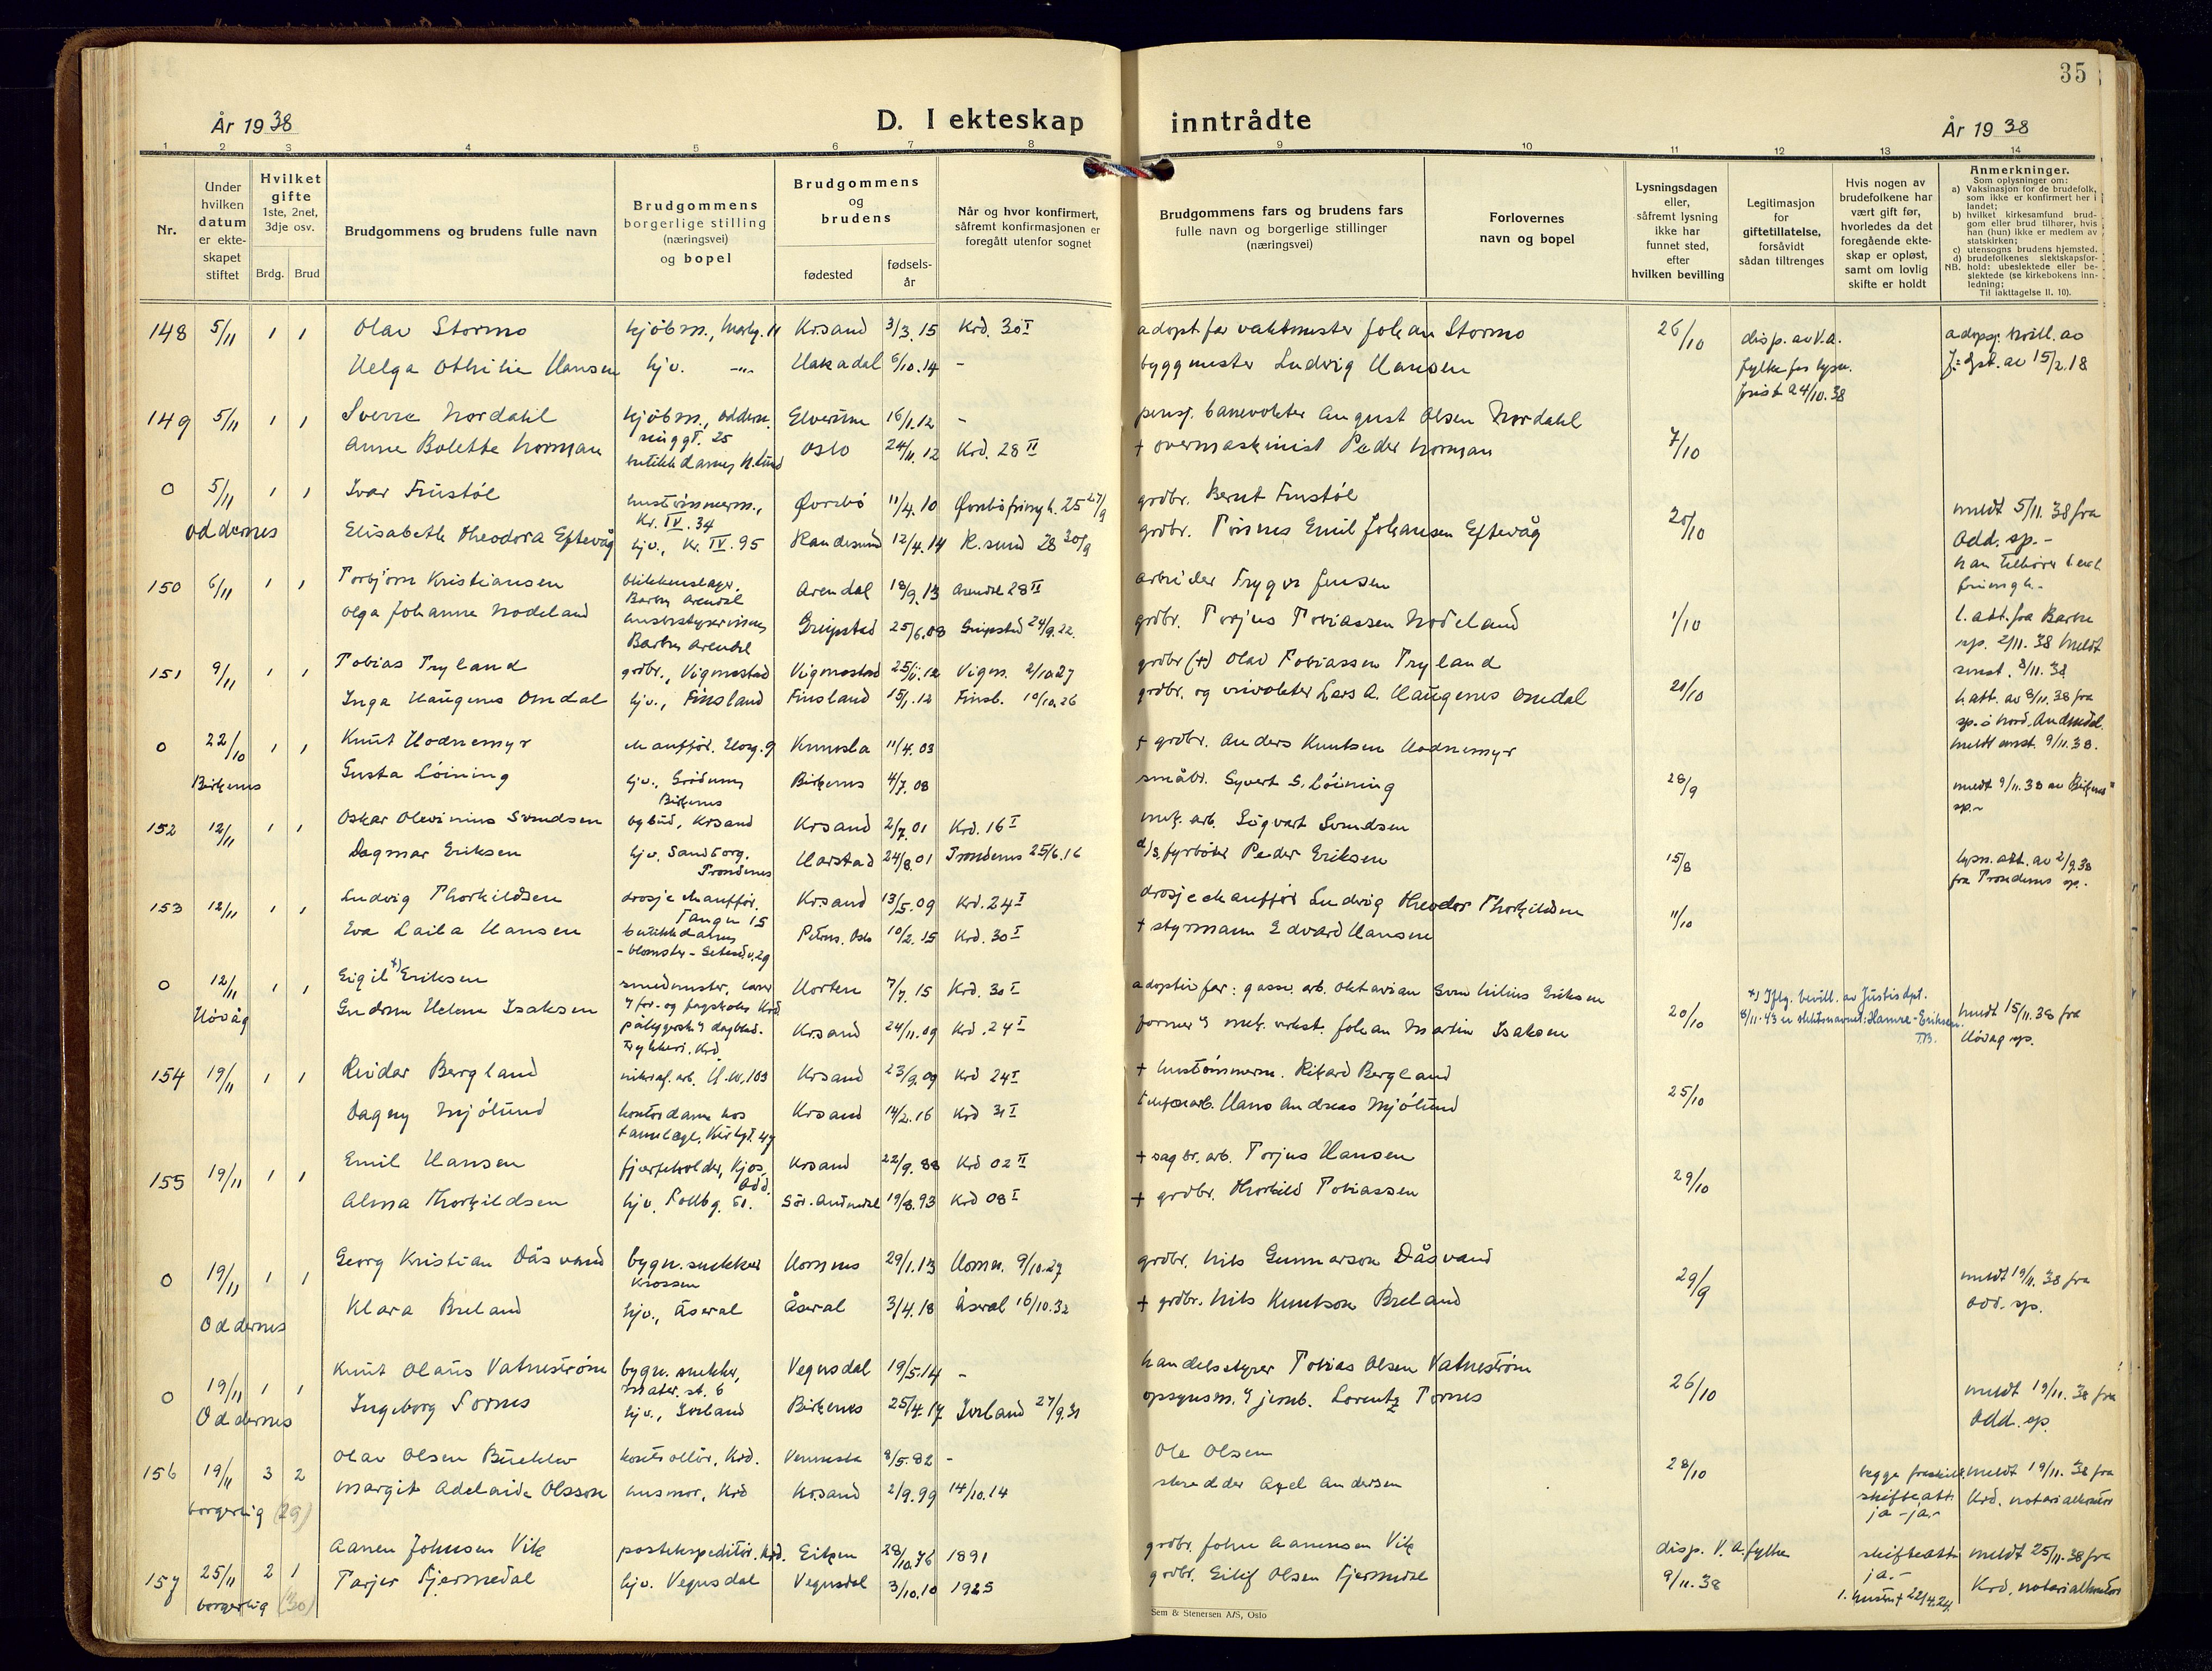 35
År 1938
D. I ekteskap inntrådte
År 1938
1 2 3 4 5 6 7 8 9 10 11 12 13 14
Nr.
Under hvilken datum er ekteskapet stiftet
Hvilket gifte 1ste, 2net, 3dje osv.
Brdg. Brud
Brudgommens og brudens fulle navn
Brudgommens borgerlige stilling (næringsvei) og bopel
Brudgommens og brudens
fødested
fødselsår
Når og hvor konfirmert, såfremt konfirmasjonen er foregått utenfor sognet
Brudgommens fars og brudens fars fulle navn og borgerlige stillinger (næringsvei)
Forlovernes navn og bopel
Lysningsdagen eller, såfremt lysning ikke har funnet sted, efter hvilken bevilling
Legitimasjon for giftetillatelse, forsåvidt sådan tiltrenges
Hvis nogen av brudefolkene har vært gift før, hvorledes da det foregående ekteskap er opløst, samt om lovlig skifte er holdt
Anmerkninger.
Som oplysninger om:
a) Vaksinasjon for de brudefolk, som ikke er konfirmert her i landet;
b) hvilket kirkesamfund brudgom eller brud tilhører, hvis han (hun) ikke er medlem av statskirken;
c) utensogns brudens hjemsted.
d) brudefolkenes slektskapsforhold: ubeslektede eller beslektede (se kirkebokens innledning;
NB.
Til iakttagelse II. 10).
148 5/11 1 1 Olav Stormo kjøbm., Krsand 3/3.15 Krd. 30 I adopt.far vaktmester Johan Stormo 26/10 disp. av V.A. fylke for lysn. frist 24/10.38
Helga Othilie Hansen hj.v. -"- Hakadal 6/10.14 - byggmester Ludvig Hansen
149 5/11 1 1 Sverre Nordahl kjøbm., Elverum 16/1.12 - pensj. banevokter August Olsen Nordahl 7/10
Anne Bolette Norman Oslo 24/11.12 Krd. 28 II + overmaskinist Peder Norman
0 5/11 1 1 Ivar Frustøl hustømmerm., Kr. IV. 34 Øvrebø 11/4.10 25 27/9 grdbr. Bernt Frustøl 20/10 meldt 5/11.38 fra Odd. sp.-
Oddernes Elisabeth Theodora Eftevåg hj.v., Kr. IV. 95 Randesund 12/4.14 R.sund 28 30/9 grdbr. Tønnes Emil Johansen Eftevåg
150 6/11 1 1 Torbjørn Kristiansen blikkenslager, Barbu Arendal Arendal 18/9.13 Arendal 28 II arbeider Trygve Jensen 1/10 l.att. fra Barbu sp. 2/11.38 meldt
Olga Johanne Nodeland Barbu Arendal Greipstad 25/6.08 Greipstad 24/9.22. grdbr. Torjus Tobiassen Nodeland
151 9/11 1 1 Tobias Tryland grdbr., Vigmostad Vigmostad 25/11.12 Vigm. 2/10.27 grdbr (+) Olav Tobiassen Tryland 20/10 l.att. av 8/11.38 fra
Inga Haugenes Omdal hj.v., Finsland Finsland 15/1.12 Finsl. 10/10.26 grdbr. og veivokter Lars A. Haugenes Omdal
0 22/10 1 1 Knut Hodnemyr chauffør. Vennesla 11/4.03 + grdbr. Anders Knutsen Hodnemyr 28/9 meldt 9/11.38 av Birkenes sp.
Birkenes Gusta Løining hj.v., Birkenes Birkenes 4/7.08 småbr. Syvert S. Løining
152 12/11 1 1 Oskar Olevinius Svendsen Krsand Krsand 2/7.01 Krd. 16 I mek. arb. Sigvart Svendsen 15/8 lysn.att. av 2/9.38 fra Trondenes sp.
Dagmar Eriksen hj.v. Sandtorg, Trondenes Harstad 24/8.01 Trondenes 25/6.16 d/s. fyrbøter Peder Eriksen
153 12/11 1 1 Ludvig Thorkildsen drosjechauffør, Tangen 15 Krsand 13/5.09 Krd. 24 I drosjechauffør Ludvig Theodor Thorkildsen 11/10
Eva Laila Hansen butikkdame -blomster- Petrus, Oslo 10/2.15 Krd. 30 I + styrmann Edvard Hansen
0 12/11 1 1 Eigil x) Eriksen smedmester, Horten 7/7.15 Krd. 30 I adoptivfar: gassv. arb. Oktavian Sven Nilius Eriksen 20/10 x) Iflg. bevill. av Justisdpt. 8/11-43 er slektsnavnet: Hamre-Eriksen. meldt 15/11.38 fra Høvåg sp.
Høvåg Gudrun Helene Isaksen Krsand 24/11.09 Krd. 24 I former v mek. verkst. Johan Martin Isaksen
154 19/11 1 1 Reidar Bergland Krsand 23/9.09 Krd 24 I + hustømmerm. Rikard Bergland 25/10
Dagny Mjølund kontordame hos tannlæge, Kirkgt. 47 Krsand 14/2.16 Krd 31 I telefonarb. Hans Andreas Mjølund
155 19/11 1 1 Emil Hansen Kjos, Odd. Krsand 22/9.88 Krd 02 II + sagbr.arb. Torjus Hansen 29/10
Alma Thorkildsen hj.v. Tollbg. 51. Sør-Audnedal 19/8.93 Krd 08 I + grdbr. Thorkild Tobiassen
0 19/11 1 1 Georg Kristian Dåsvand bygn.snekker Krossen Hornnes 29/1.13 Hornn. 9/10.27 grdbr. Nils Gunnarson Dåsvand 29/9 meldt 19/11.38 fra Odd. sp.
Oddernes Klara Breland hj.v., Åseral Åseral 3/4.18 Åseral 16/10.32 + grdbr. Nils Knutson Breland
0 19/11 1 1 Knut Olaus Vatnestrøm bygn. snekker, Vegusdal 19/5.14 - handelsstyrer Tobias Olsen Vatnestrøm 26/10 meldt 19/11.38 fra Odd. sp.
Oddernes Ingeborg Tornes hj.v., Iveland Birkenes 25/4.17 Iveland 27/9.31 opsynsm. v jernb. Lorentz Tornes
156 19/11 3 2 Olav Olsen kontrollør, Krd. Vennesla 8/5.82 - Ole Olsen 28/10 begge fraskilt. skifteatt. ja - ja.- meldt 19/11.38 fra Krd. notarialkontor
borgerlig (29) Margit Adelaide Olsson husmor, Krd Krsand 2/9.99 14/10.14 skredder Axel Andersen
157 25/11 2 1 Aanen Johnsen Vik postekspeditør. Krd. Eiken 28/10.76 1891 grdbr. John Aanensen Vik disp. V.A. fylke 9/11.38 skifteatt. ja.- 1. hustru + 22/4.24. meldt 25/11.38 fra Krd. notarialkontor
borgerlig (30) Tarjer Fjermedal hj.v. Vegusdal Vegusdal 3/10.10 1925 grdbr. Eilif Olsen Fjermedal
Sem & Stenersen A/S, Oslo